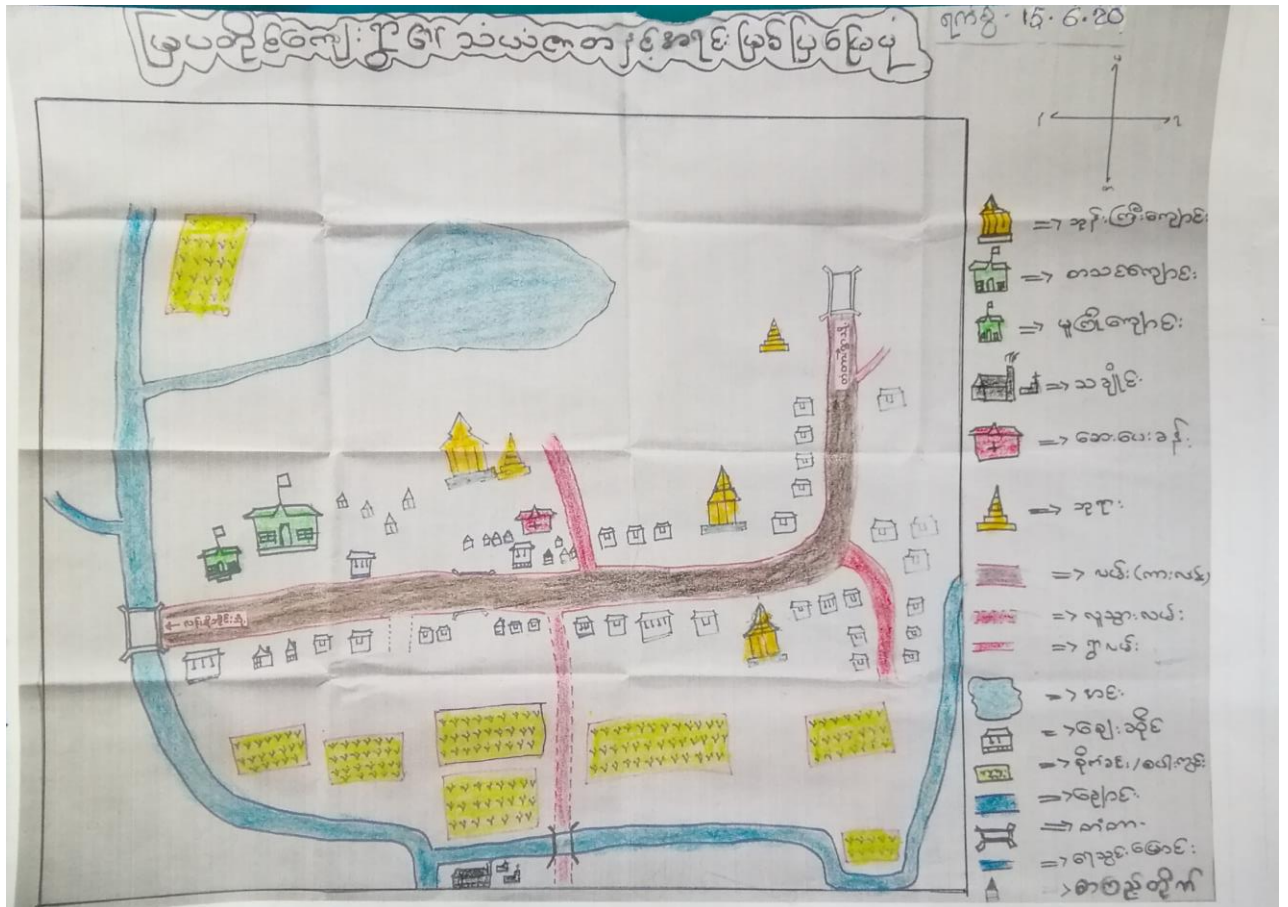 မြပတိုင်ကျေးရွာ၏ သယံဇာတ နှင့်အရင်းမြစ်ပြမြေပုံ
ရက်စွဲ - 15.6.20
=> ဘုန်းကြီးကျောင်း
=> စာသင်ကျောင်း
=> မူကြိုကျောင်း
=> သချိုင်း
=> ဆေးပေးခန်း
=> ဘုရား
=> လမ်း (ကားလမ်း)
=> လူသွားလမ်း
=> ရွာလမ်း
=> အင်း
=> ဈေးဆိုင်
=> စိုက်ခင်း/စပါးကွင်း
=> ချောင်း
=> တံတား
=> ရေသွင်းမြောင်း